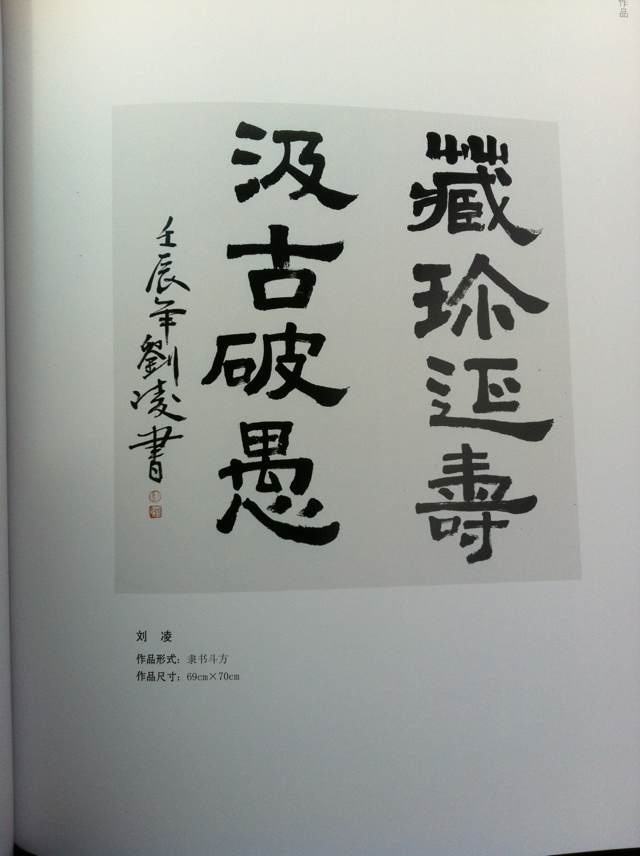 作品
藏珍延壽
汲古破愚
壬辰年劉凌書
刘 凌
作品形式：隶书斗方
作品尺寸：69cm×70cm